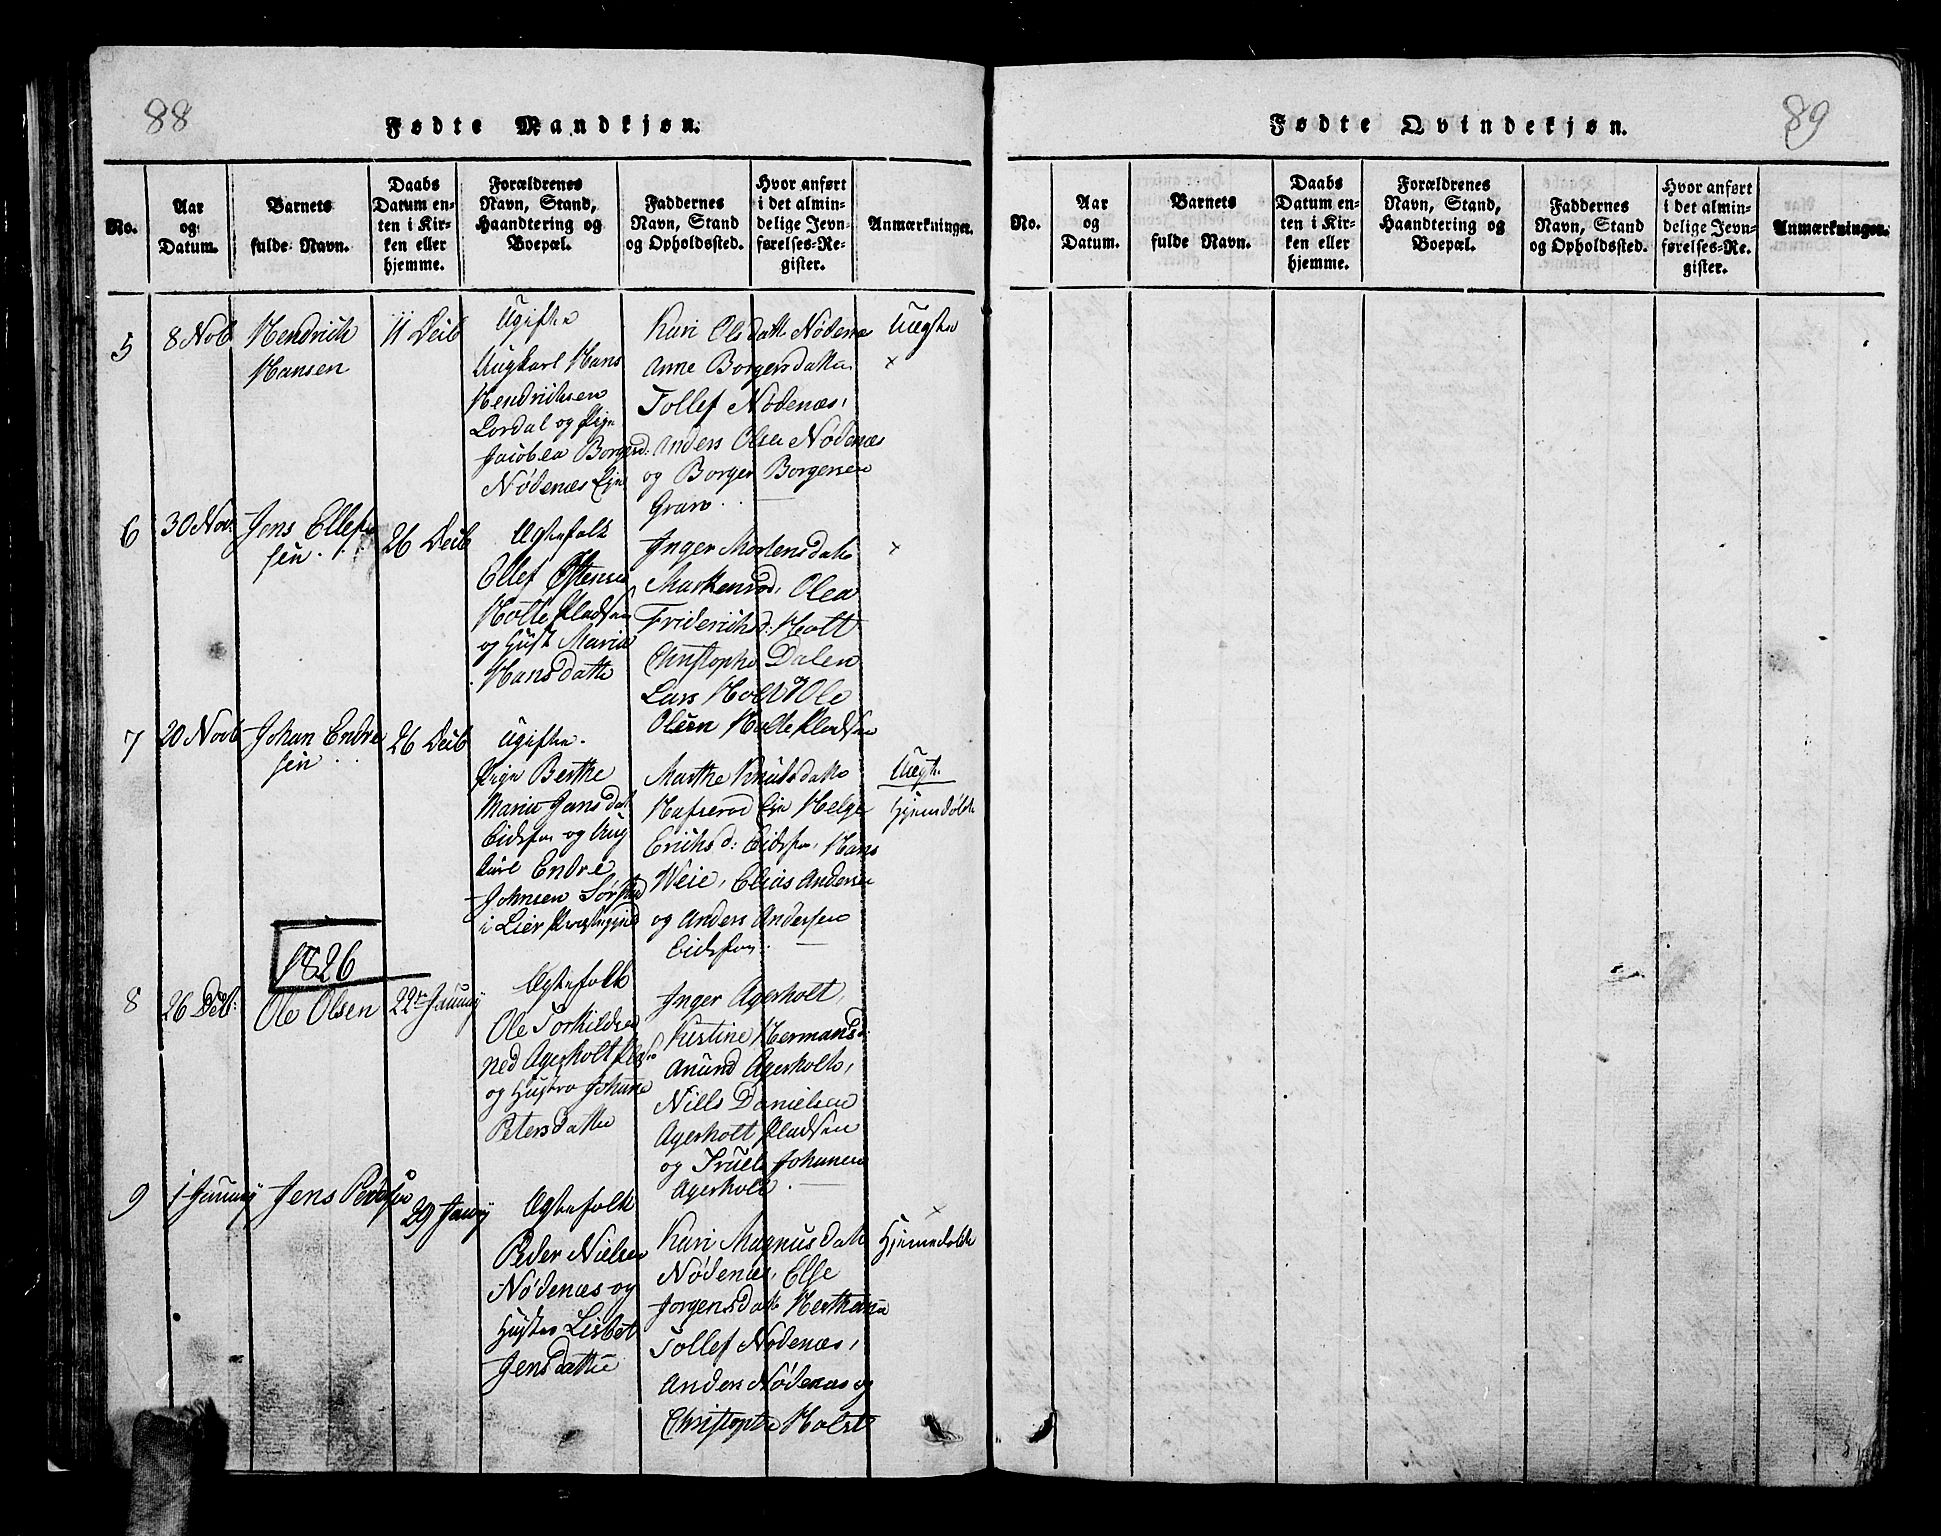 88
Fødte Mandkjøn.
No.
Aar
og
Datum.
Barnets
fulde Navn.
Daabs
Datum en-
ten i Kir-
ken eller
hjemme.
Forældrenes
Navn, Stand,
Haandtering og
Boepæl.
Faddernes
Navn, Stand
og Opholdssted.
Hvor anført
i det almin-
delige Jevn-
førelses-Re-
gister.
Anmærkninger.
5
8 Novb
Hendrich
Hansen
11 Decb
Ugifte
Ungkarl Hans
Hendrichsen
Lordal og Pige
Jacobea Borgersd:
Nødenæs Eje
Kari Olsdatte Nødenæs
Anne Borgersdatte
Tollef Nødenæs,
Anders Olsen Nødenæs
og Borger Borgersen
Gran.
Uægte
×
6
30 Nov:
Jens Ellef
sen.
26 Decb
Ægtefolk
Ellef Østensen
Holte Pladsen
og Hust Maria
Hansdatte
Inger Mortensdatte
Markenrød, Olea
Friderichsd: Holt
Christopher Dalen
Lars Holt og Ole
Olsen Holte Pladsen
×
7
20 Novb
Johan Endre
sen
26 Decb
Ugifte.
Pige Berthe
Marie Jensdat
Eidsfos og Ung
karl Endre
Johnsen
i Lier Præstegjeld
Marthe Knudsdatte
Eje Helge
Erichsd: Eidsfos, Hans
Weie, Elias Andersen
og Anders Andersen
Eidsfos.
Uægt.
Hjemdøbt
1826
8
26 Decb:
Ole Olsen
22de Januarj
Ægtefolk
Ole Torkildsen
ned Agerholt Plads
og Hustro Johanne
Petersdatte
Inger Agerholt,
Kirstine Hermansd:
Anund Agerholt,
Niels Danielsen
Agerholt Pladsen
og Truels Johannesen
Agerholt.
9
1 Januarj
Jens Pedersen
29 Janrj
Ægtefolk
Peder Nielsen
Nødenæs og
Hustro Lisbet
Jensdatte
Kari Magnusdatte
Nødenæs, Else
Jorgensdatte
Tollef Nødenæs,
Anders Nødenæs og
Christopher Holst
×
Hjemmedøbt
89
Fødte Qvindekjøn.
No.
Aar
og
Datum.
Barnets
fulde Navn.
Daabs
Datum en-
ten i Kir-
ken eller
hjemme.
Forældrenes
Navn, Stand,
Haandtering og
Boepæl.
Faddernes
Navn, Stand
og Opholdssted.
Hvor anført
i det almin-
delige Jevn-
førelses-Re-
gister.
Anmærkninger.